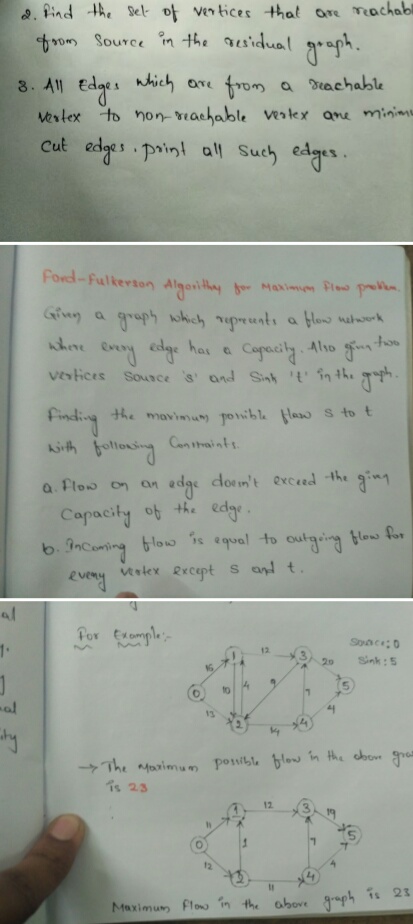 2. Find the set of vertices that are reachabl
from source in the residual graph.
3. All Edges which are from a reachable
vertex to non-reachable vertex are minimu
cut edges. print all such edges.
Ford-Fulkerson Algorithy for Maximum Flow problem.
Given a graph which represents a flow network
where every edge has a Capacity. Also given two
vertices source 's' and Sink 't' in the graph.
finding the maximum possible flow s to t
with following Constraints
a. Flow on an edge doesn't exceed the given
Capacity of the edge.
b. Incoming flow is equal to outgoing flow for
every vertex except s and t.
al
For Example:-
Source: 0
Sink: 5
1 12 3 20
16 10 4 9 7 5
0 13 2 14 4 4
ity
→ The Maximum possible flow in the above gra
is 23
1 12 3 19
11 1 7 5
0 12 2 11 4 4
Maximum flow in the above graph is 23